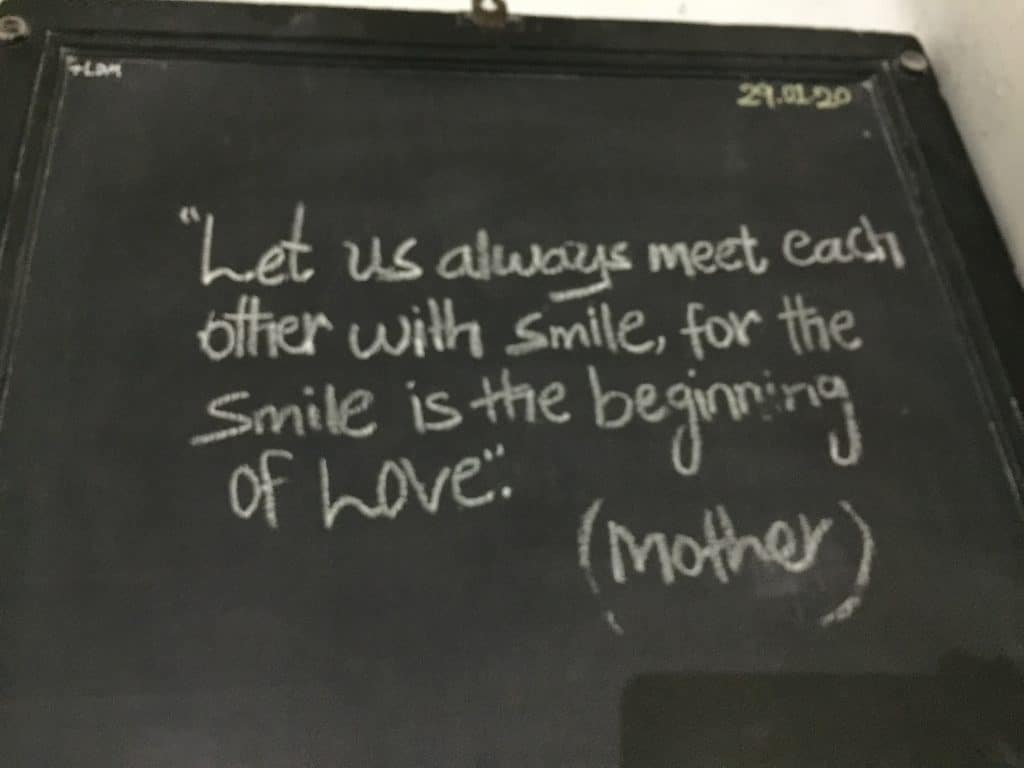 29.01.20
"Let us always meet each
other with smile, for the
smile is the beginning
of Love".
(Mother)